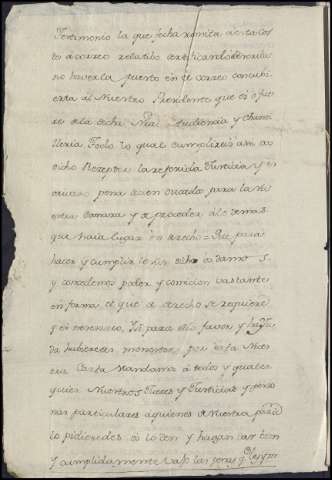 Testimonio la que fecha remita a esta Cor
te a correo relatibo certificandole de cui
no haverla puesto en el correo con cubi
erta al Nuestro Presidente que es o fue
re de la dicha Nra Audiencia y Chanci
lleria Todo lo qual cumplireis asi vos
dicho Rezeptor la referida Justicia y es
crivano pena de cien ducados para la Nu
estra Camara y de proceder a lo demas
que haia lugar en derecho = Que para
hacer y cumplir lo suso dicho os damos
y concedemos poder y comision bastante
en forma el que de derecho se requiere
y es necesario, Y si para ello favor y Ayu
da hubieredes menester, por esta Nues
tra Carta Mandamos a todos y quales
quier Nuestros Jueces y Justicias y perso
nas particulares a quienes de Nuestra parte
lo pidieredes os lo den y hagan dar bien
y cumplidamente vajo las penas q